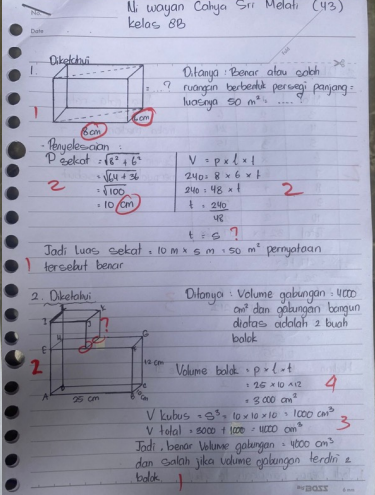 No.
Date
Ni wayan Cahya Sri Melati (43)
kelas 8B
Diketahui
1.
= ... ?
6 cm
8 cm
1
Ditanya : Benar atau salah
ruangan berbentuk persegi panjang =
luasnya 50 m² = .... ?
- Penyelesaian :
P sekat = √8² + 6²
= √64 + 36
= √100
= 10 cm
2
V = p x l x t
240 = 8 x 6 x t
240 = 48 x t
t = 240
48
t = 5 ?
2
Jadi Luas sekat = 10 m x 5 m = 50 m² pernyataan
tersebut benar
1
2. Diketahui
E
G
A
B
C
12 cm
25 cm
?
2
Ditanya : Volume gabungan = 4000
cm³ dan gabungan bangun
diatas adalah 2 buah
balok
Volume balok = p x l x t
= 25 x 10 x 12
= 3000 cm³
4
V kubus = S³ = 10 x 10 x 10 = 1000 cm³
V total = 3000 + 1000 = 4000 cm³
3
Jadi, benar Volume gabungan = 4000 cm³
dan salah jika volume gabungan terdiri 2
balok.
1
BOSS